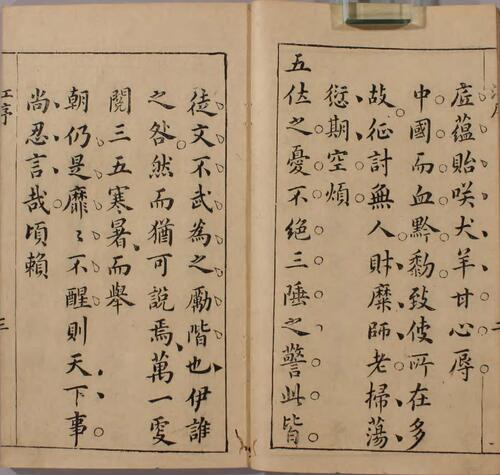 底蘊貽咲犬羊甘心辱
中國而血黔黎致使所在多
故征討無人財糜師老掃蕩
愆期空煩
五位之憂不絶三陲之警此皆
徒文不武為之厲階也伊誰
之咎然而猶可說焉萬一更
閱三五寒暑而舉
朝仍是靡〻不醒則天下事
尚忍言哉頃賴
序
三